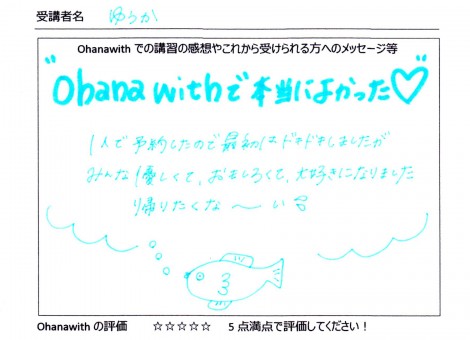 受講者名 ゆうか
Ohanawith での講習の感想やこれから受けられる方へのメッセージ等
"Ohana withで本当によかった♡"
1人で予約したので最初はドキドキしましたが
みんな優しくて、おもしろくて、大好きになりました
帰りたくな〜い
3
Ohanawith の評価 ☆☆☆☆☆ 5 点満点で評価してください！